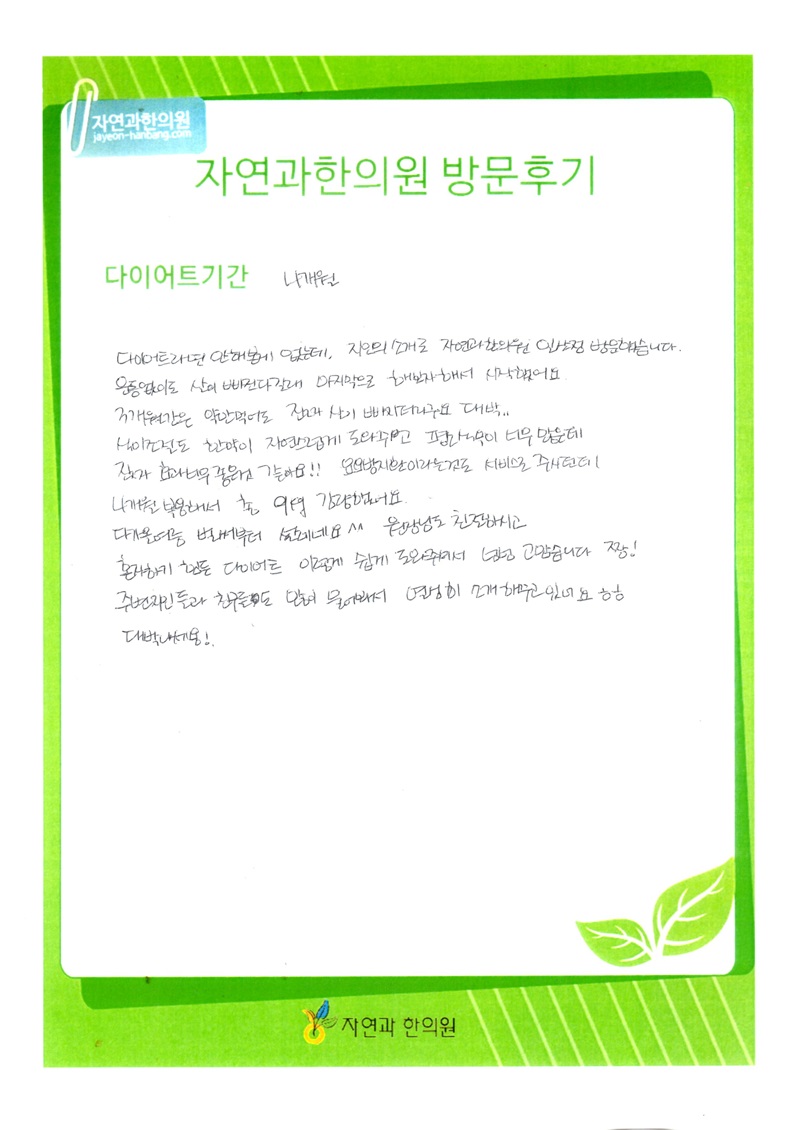 자연과한의원
jayeon-hanbang.com
자연과한의원 방문후기
다이어트기간 4개월
다이어트라면 안해본게 없는데, 지인의 소개로 자연과한의원 일산점 방문했습니다.
운동없이도 살이 빠진다길래 마지막으로 해보자해서 시작했어요
3개월간은 약만먹어도 진짜 살이 빠지더라구요 대박..
식이조절도 한약이 자연스럽게 도와주고 포만감이 너무 많은데
진짜 효과너무 좋은것 같아요!! 요요방지환이라는것도 서비스로 주시던데
4개월 복용해서 총 감량했어요
다가올여름 벌써부터 설레네요^^ 원장님도 친절하시고
혼자하기 힘든 다이어트 이렇게 쉽게 도와주셔서 넘넘 고맙습니다 짱!
주변지인들과 친구들도 많이 물어봐서 열심히 소개해주고 있네요 ㅎㅎ
대박나세용!
자연과 한의원